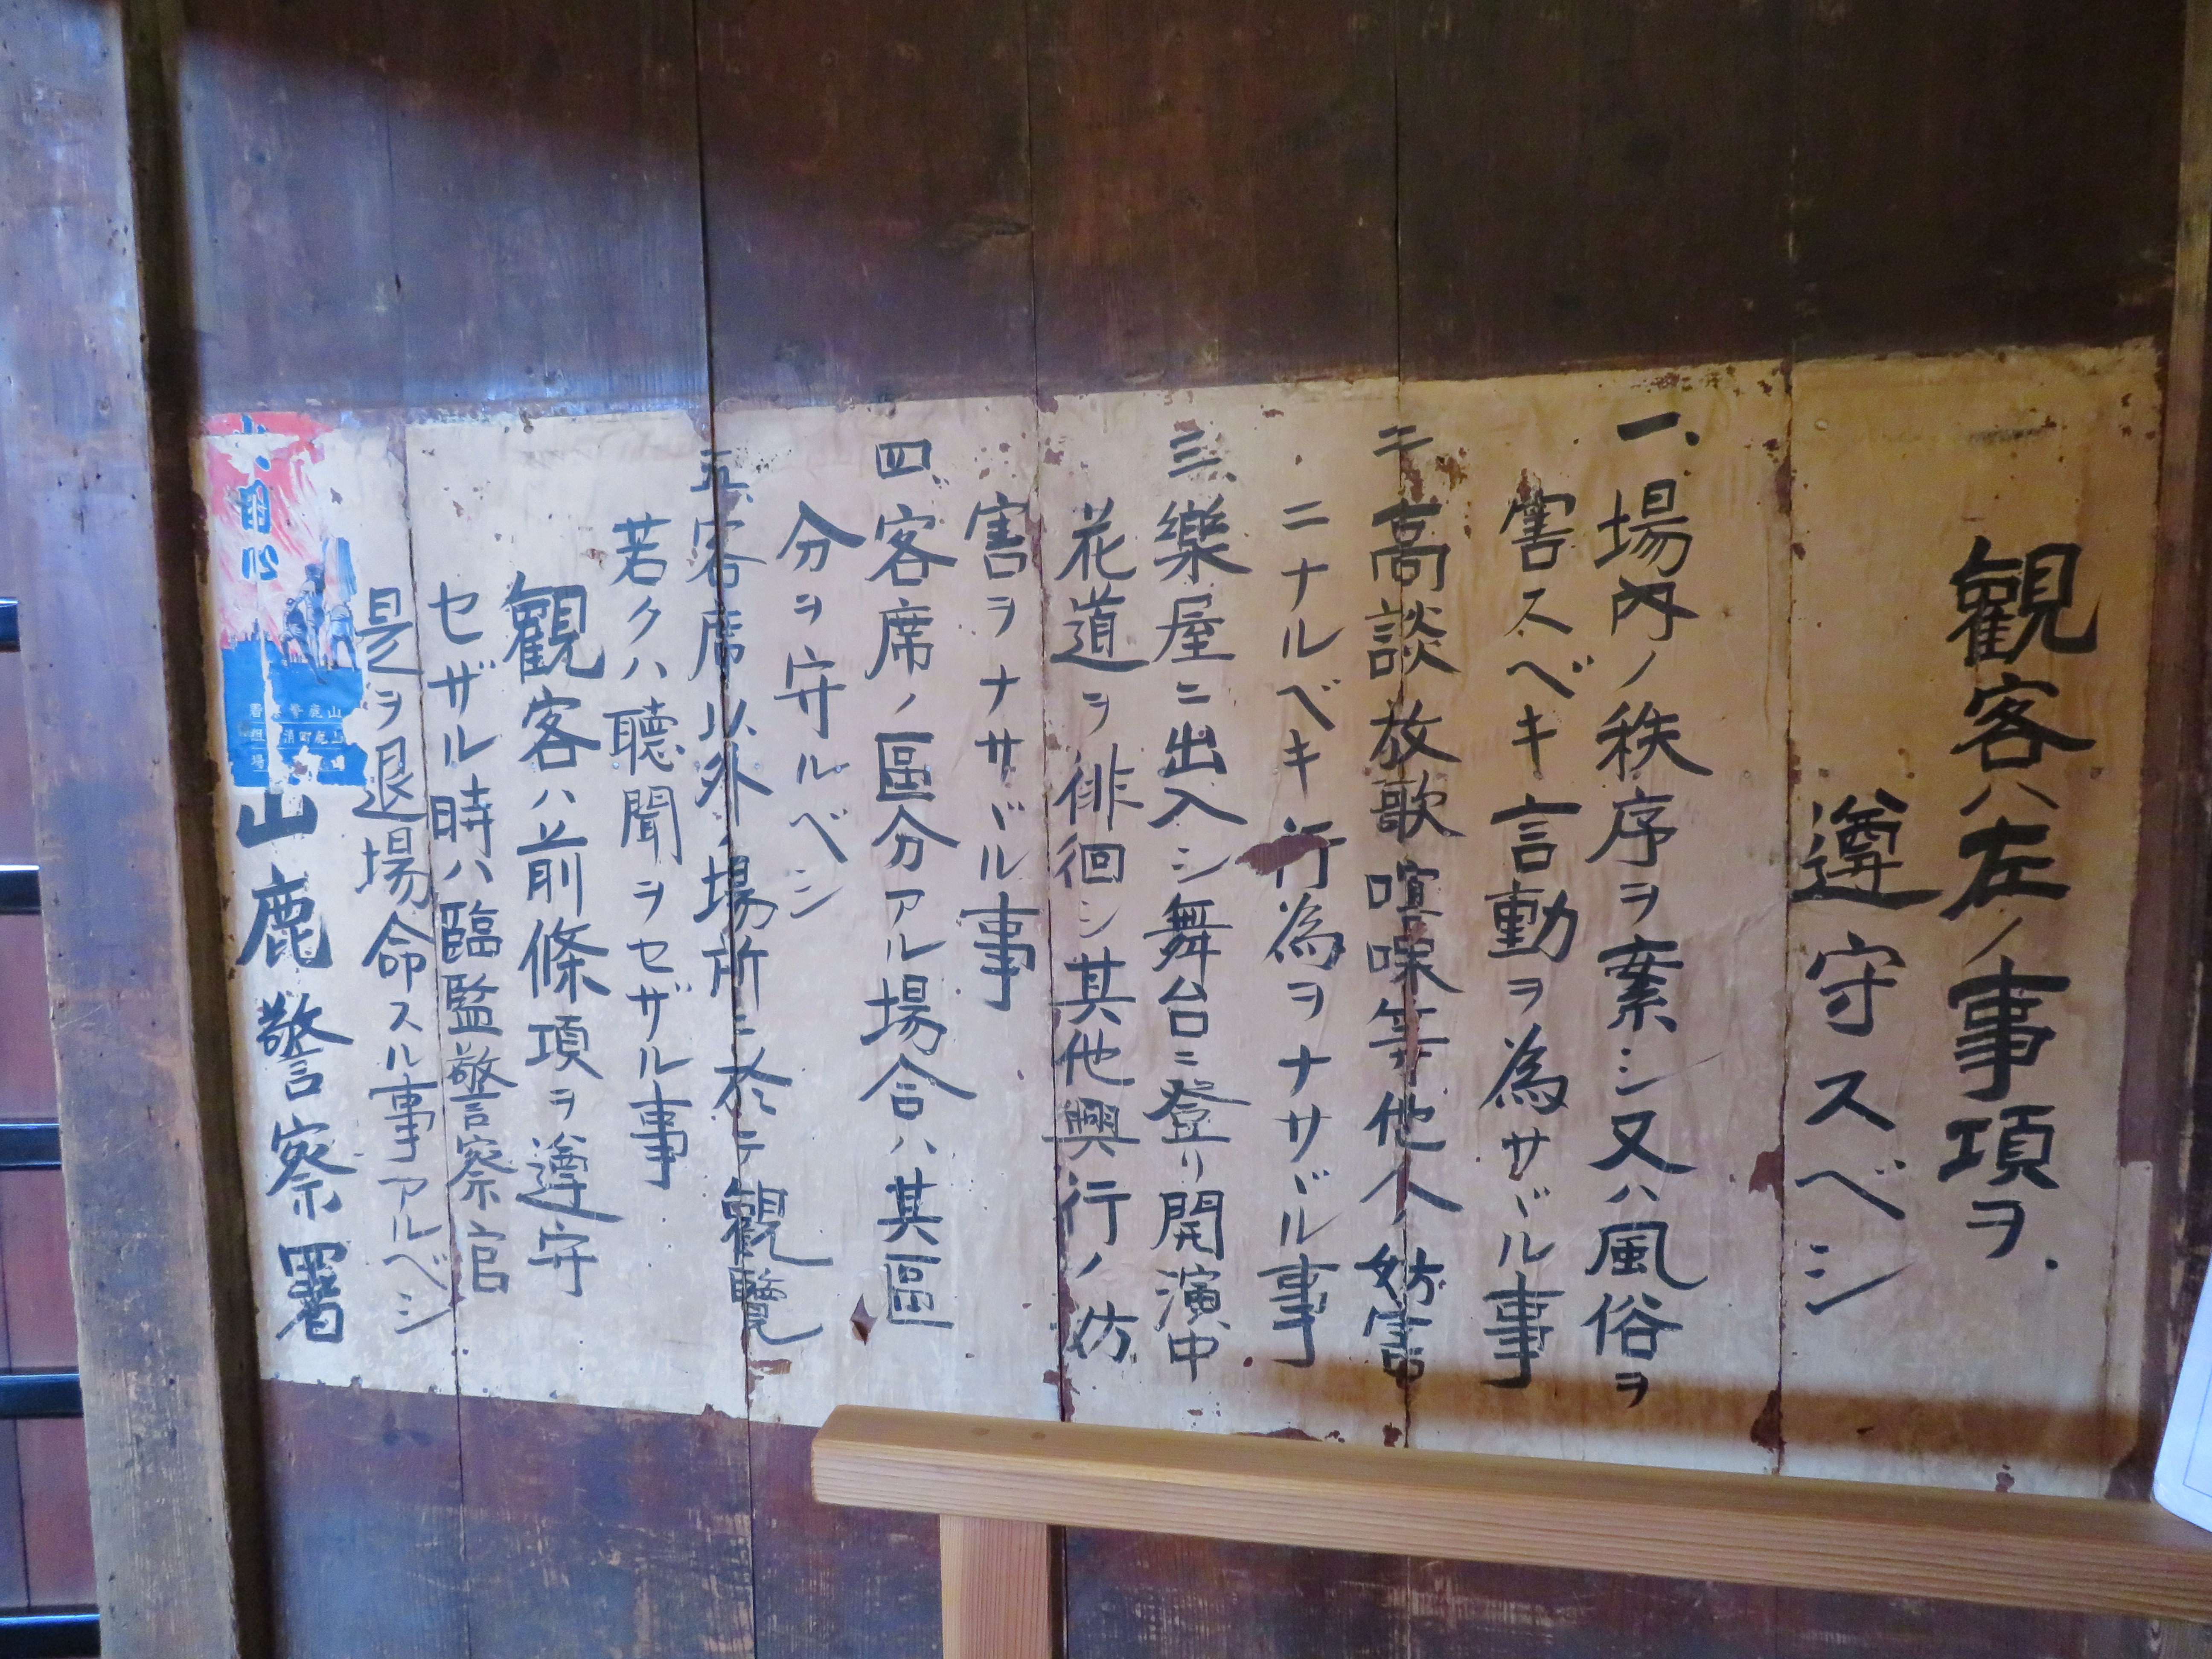 観客ハ左ノ事項ヲ
遵守スベシ
一、場内ノ秩序ヲ紊シ又ハ風俗ヲ
害スベキ言動ヲ為サヾル事
二、高談放歌喧噪等他人ノ妨害
ニナルベキ行為ヲナサヾル事
三、樂屋ニ出入シ舞台ニ登リ開演中
花道ヲ徘徊シ其他興行ノ妨
害ヲナサヾル事
四、客席ノ區分アル場合ハ其區
分ヲ守ルベシ
五、客席以外ノ場所ニ於テ観覧
若クハ聴聞ヲセザル事
観客ハ前條項ヲ遵守
セザル時ハ臨監警察官
是ヲ退場命スル事アルベシ
山鹿警察署